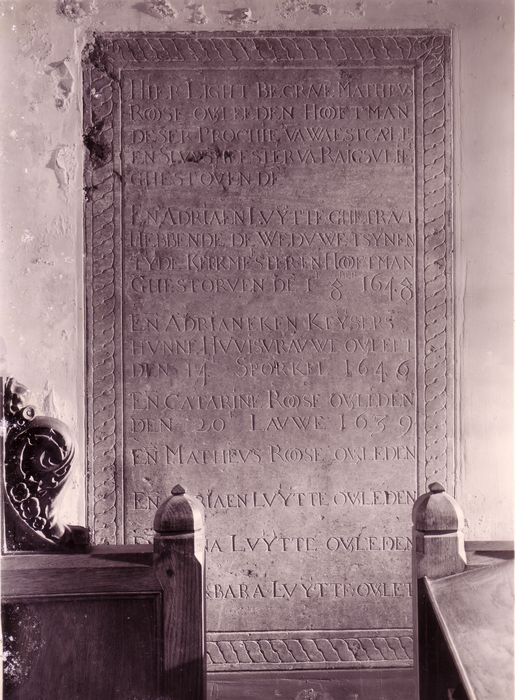 HIER LIGHT BEGRAVE MATHEUS
ROOSE OVLEEDEN HOOFTMAN
DESER PROCHIE, VA WAESTCAPE
EN SLVVSMEESTER VA
GHESTOVEN DE
EN ADRIAEN LVŸTTE GHETRAVT
HEBBENDE DE WEDVWE TSYNEN
TYDE KERKMESTER EN HOOFTMAN
GHESTORVEN DE 1 8/8 1648
EN ADRIANEKEN KEYSERS
HVNNE HVVISVRAVWE OVLEET
DEN 14 SPORKEL 1646
EN CATARINE ROOSE OVLEDEN
DEN 20 LAVWE 1639
EN MATHEVS ROOSE OVLEDEN
EN ADRIAEN LVŸTTE OVLEDEN
NA LVŸTTE OVLEDEN
BARA LVYTTE OVLET